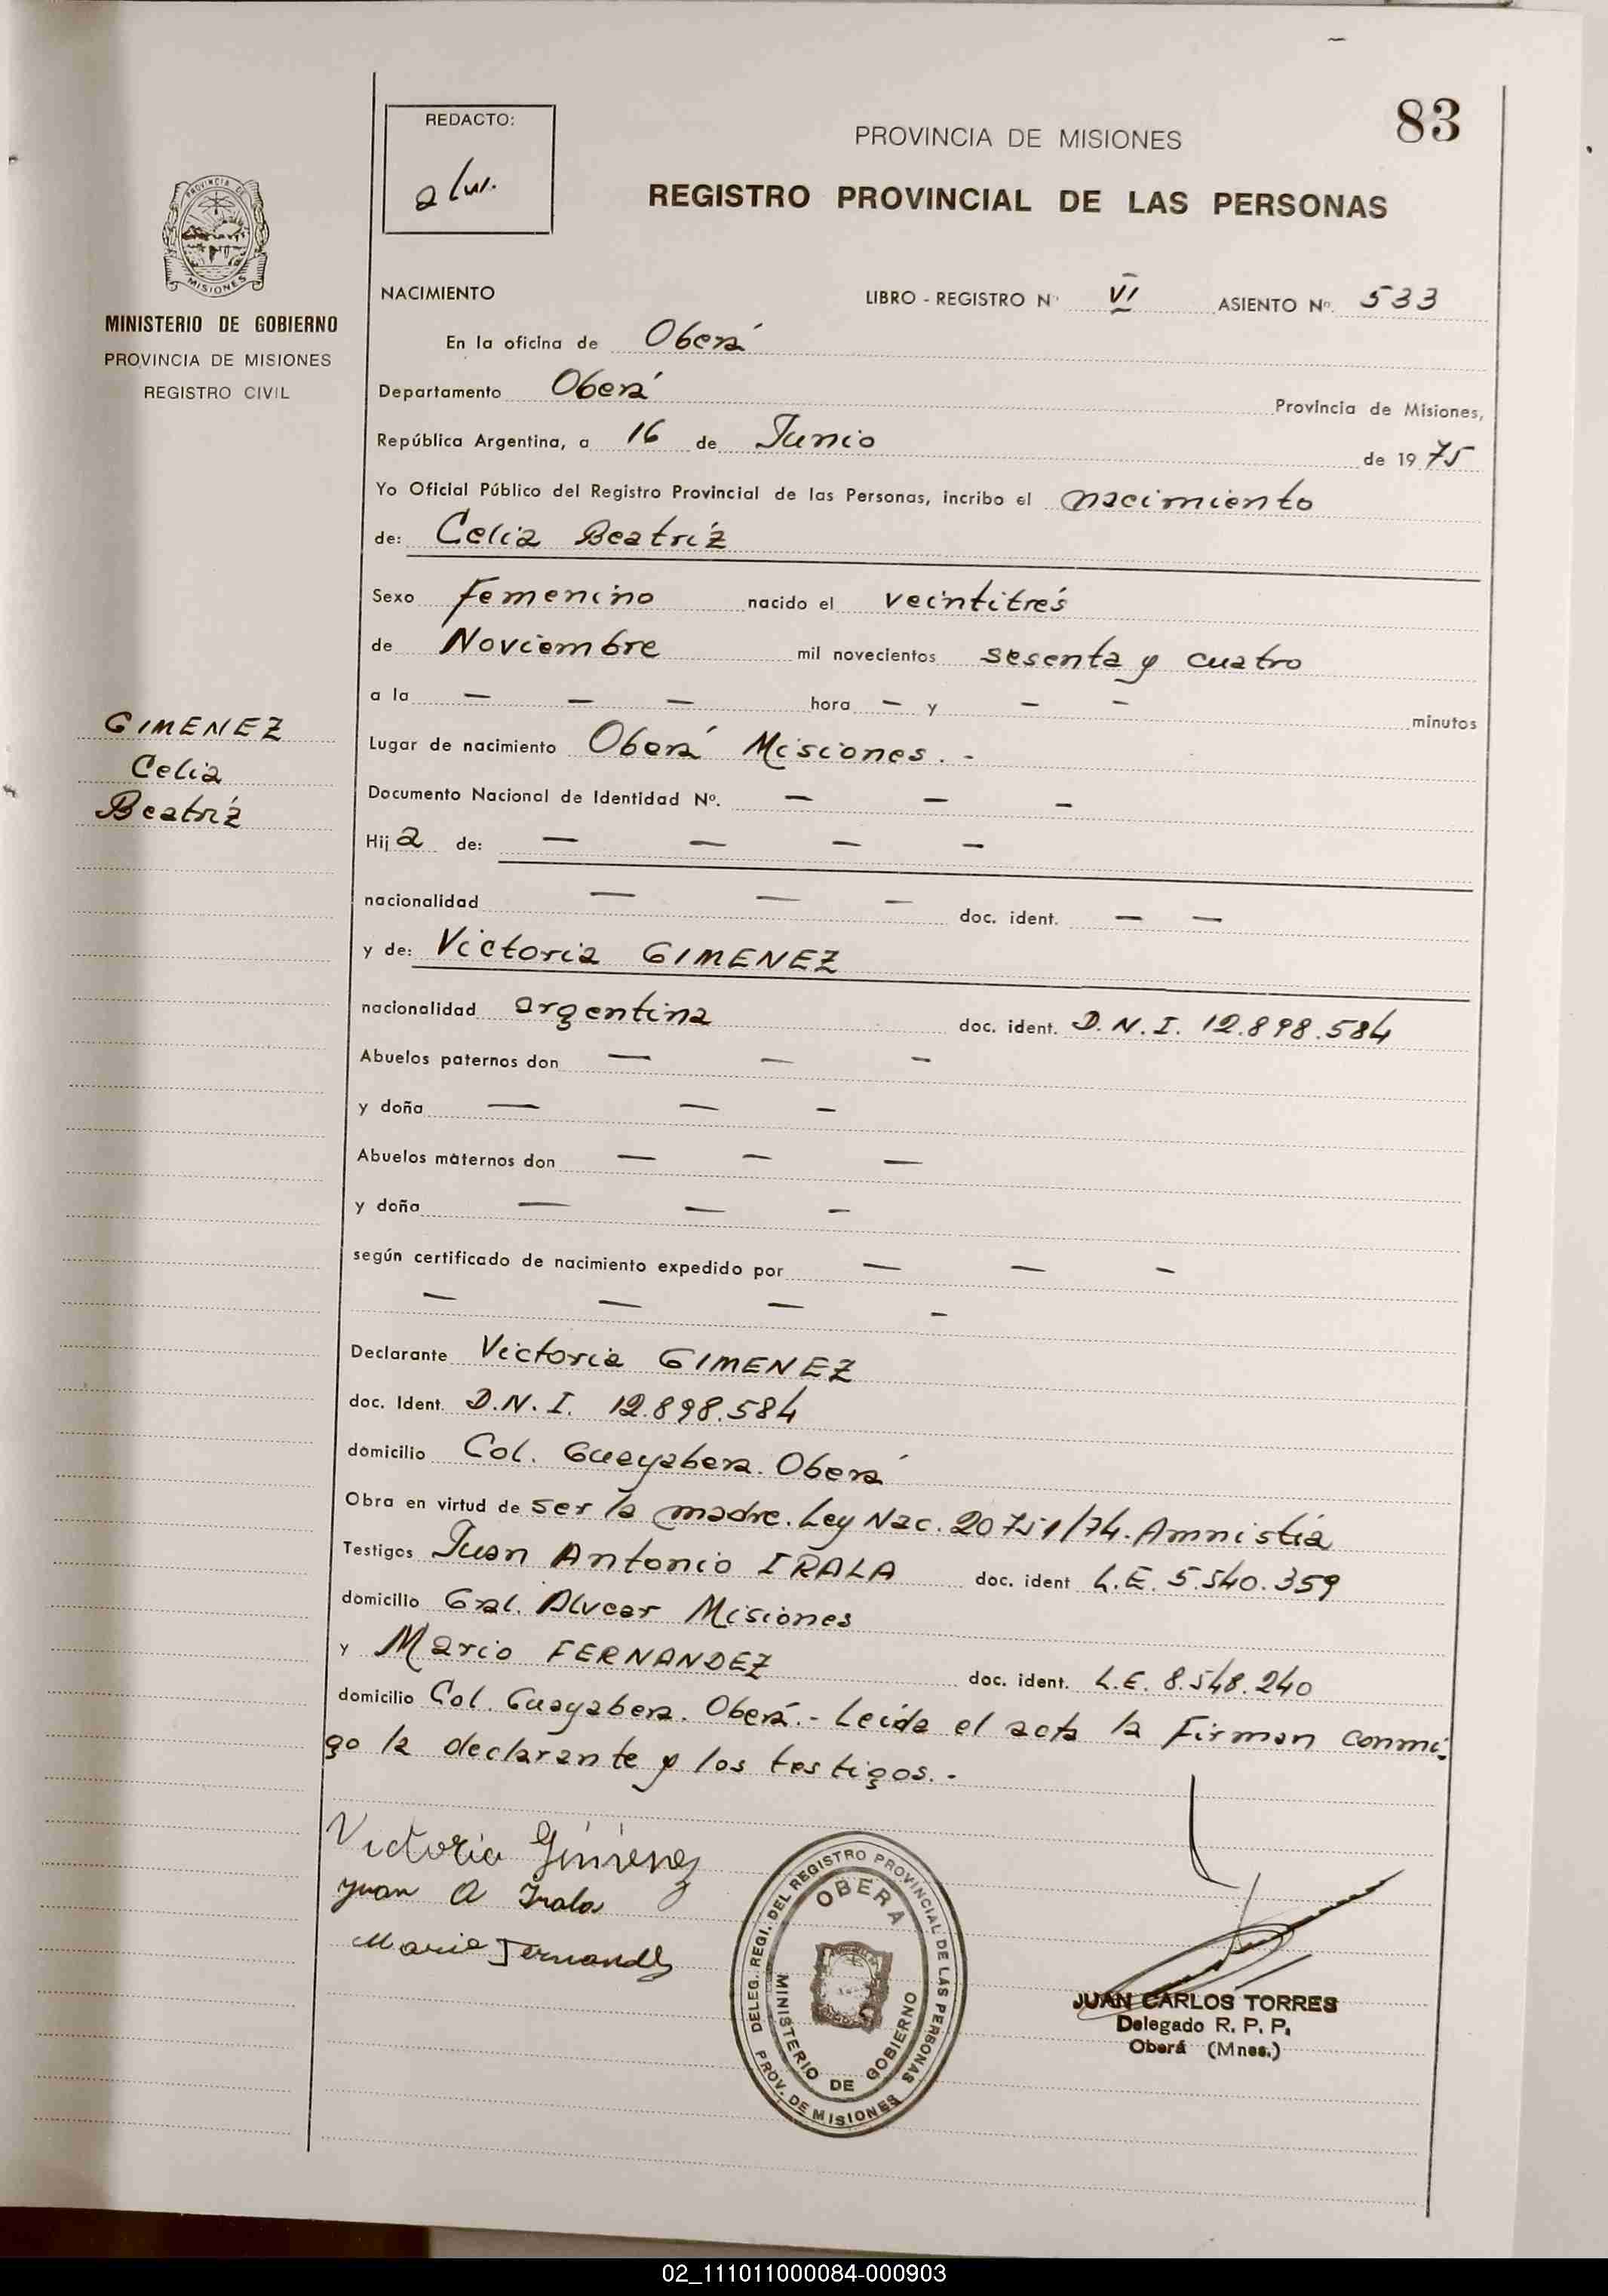 83
REDACTO:
PROVINCIA DE MISIONES
REGISTRO PROVINCIAL DE LAS PERSONAS
PROVINCIA DE
MISIONES
MINISTERIO DE GOBIERNO
PROVINCIA DE MISIONES
REGISTRO CIVIL
NACIMIENTO LIBRO - REGISTRO Nº VI ASIENTO Nº. 533
En la oficina de Oberá
Departamento Oberá Provincia de Misiones,
República Argentina, a 16 de Junio de 1975
Yo Oficial Público del Registro Provincial de las Personas, incribo el nacimiento
de: Celia Beatríz
Sexo femenino nacido el veintitrés
de Noviembre mil novecientos sesenta y cuatro
a la — — — hora — y — — minutos
GIMENEZ
Celia
Beatríz
Lugar de nacimiento Oberá Misiones. -
Documento Nacional de Identidad Nº. — — —
Hija de: — — — —
nacionalidad — — — doc. ident. — —
y de: Victoria GIMENEZ
nacionalidad argentina doc. ident. D.N.I. 12.898.584
Abuelos paternos don — — —
y doña — — —
Abuelos maternos don — — —
y doña — — —
según certificado de nacimiento expedido por — — —
— — — —
Declarante Victoria GIMENEZ
doc. Ident. D.N.I. 12.898.584
domicilio Col. Guayabera. Oberá
Obra en virtud de ser la madre. Ley Nac. 20751/74. Amnistía
Testigos Juan Antonio IRALA doc. ident L.E. 5.540.359
domicilio Gral. Alvear Misiones
y Mario FERNANDEZ doc. ident. L.E. 8.548.240
domicilio Col. Guayabera. Oberá.- Leída el acta la firman conmi-
go la declarante y los testigos.-
Victoria Gimenez
Juan A Irala
Mario Fernandez
DELEG. REGI. DEL REGISTRO PROVINCIAL DE LAS PERSONAS
PROV. DE MISIONES
OBERA
MINISTERIO DE GOBIERNO
JUAN CARLOS TORRES
Delegado R. P. P.
Oberá (Mnes.)
02_111011000084-000903